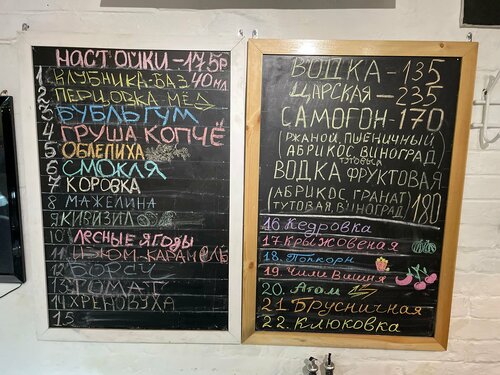 НАСТОЙКИ-175р
1 КЛУБНИКА-БАЗ 40мл
2 ПЕРЦОВКА МЁД
3 БУБЛЬГУМ
4 ГРУША КОПЧЁ
5 ОБЛЕПИХА
6 СМОКЛЯ
7 КОРОВКА
8 МАЖЕЛИНА
9 КИВИЗИЛ
10 ЛЕСНЫЕ ЯГОДЫ
11 ИЗЮМ-КАРАМЕЛЬ
12 БОРСЧ
13 ТОМАТ
14 ХРЕНОВУХА
15
ВОДКА-135
ЦАРСКАЯ-235
САМОГОН-170
(РЖАНОЙ, ПШЕНИЧНЫЙ
АБРИКОС ВИНОГРАД)
ТУТОВЫЙ
ВОДКА ФРУКТОВАЯ
(АБРИКОС ГРАНАТ)
ТУТОВАЯ, ВИНОГРАД 180
16 Кедровка
17 Крыжовеная
18. Попкорн
19. Чили Вишня
20. Атом
21. Брусничная
22. Клюковка